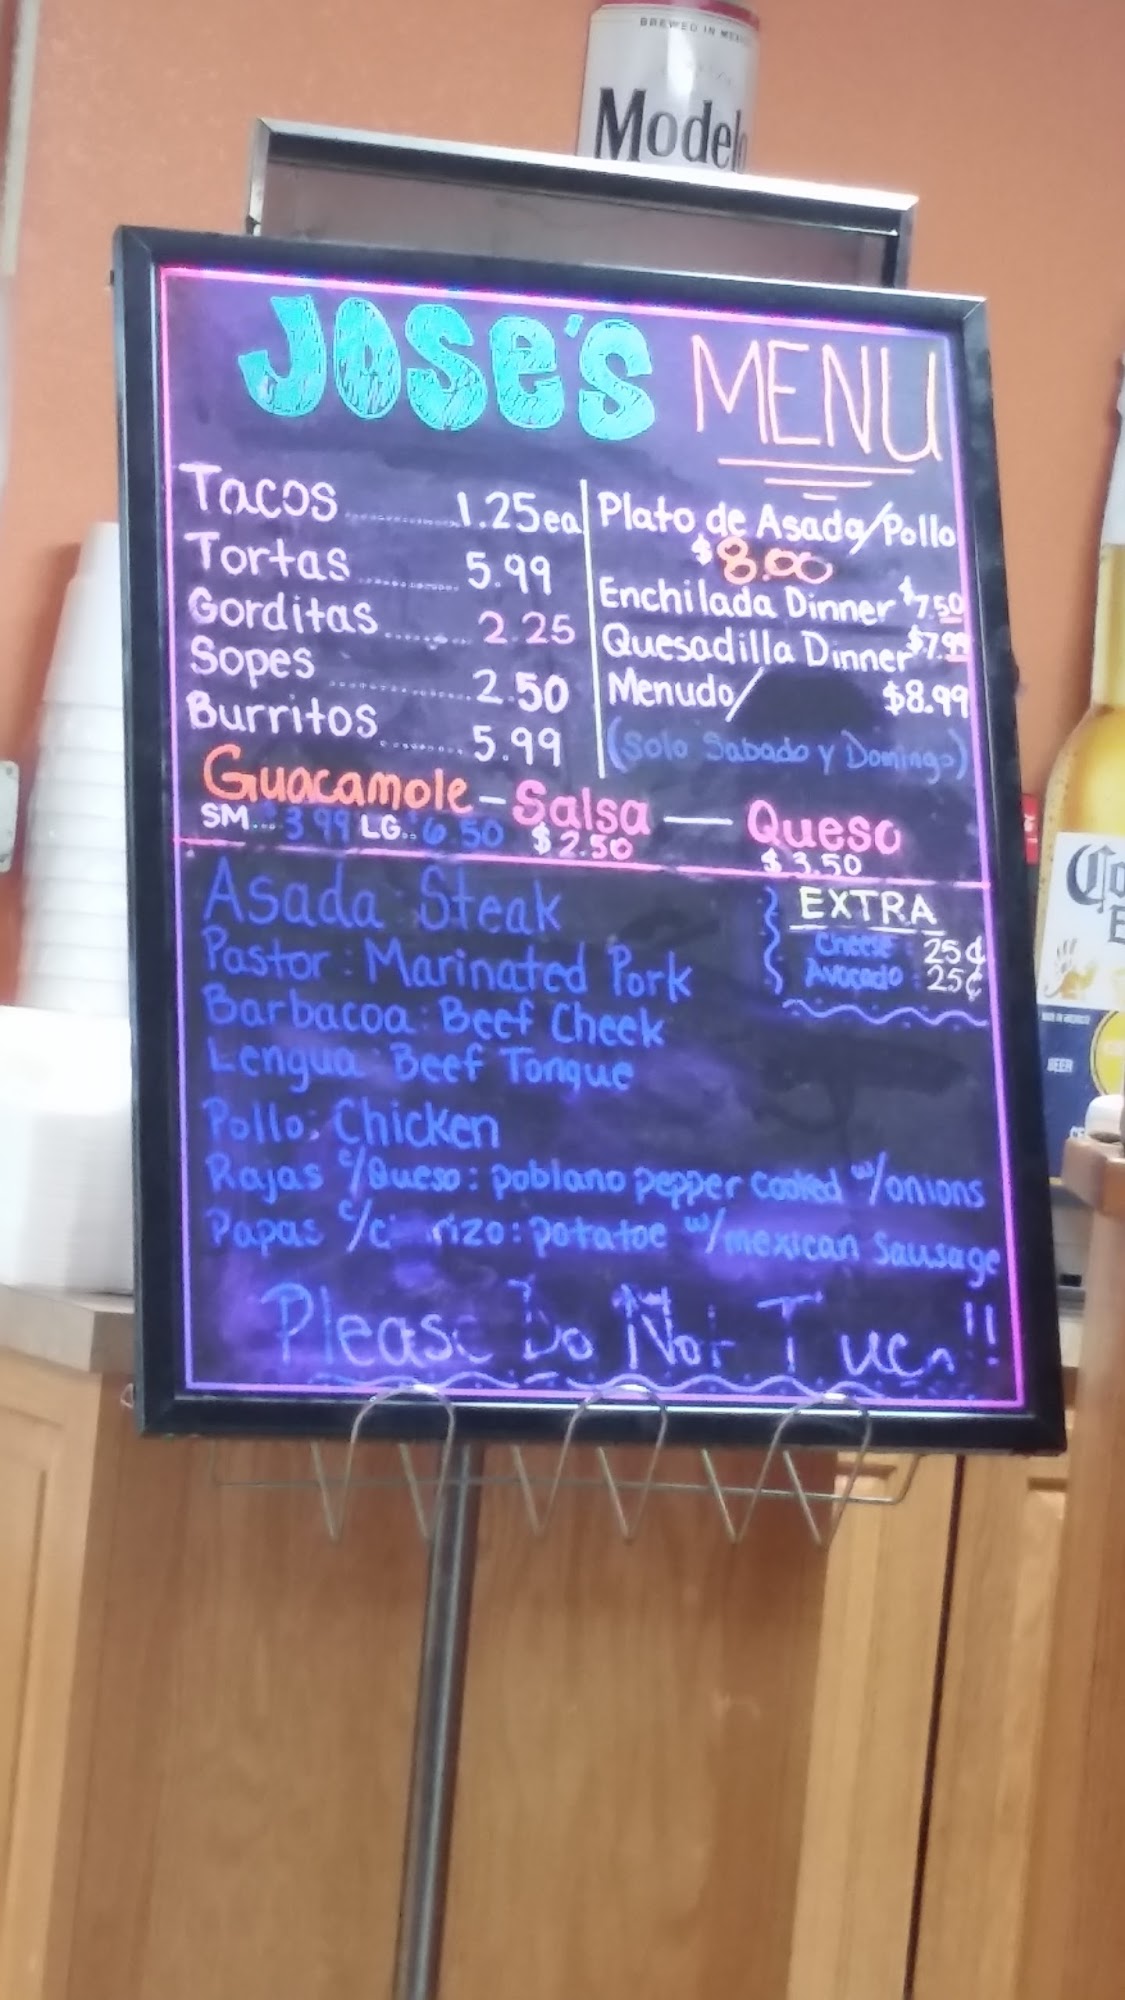 BREWED IN MEXICO
Modelo
JOSE'S MENU
Tacos ........ 1.25ea
Tortas ........ 5.99
Gorditas ........ 2.25
Sopes ........ 2.50
Burritos ........ 5.99
Plato de Asada/Pollo
$8.00
Enchilada Dinner $7.50
Quesadilla Dinner $7.99
Menudo/ $8.99
(Solo Sabado y Domingo)
Guacamole - Salsa — Queso
SM... 3.99 LG.. 6.50 $2.50 $3.50
Asada : Steak
Pastor : Marinated Pork
Barbacoa : Beef Cheek
Lengua : Beef Tongue
Pollo : Chicken
Rajas c/Queso : poblano pepper cooked w/onions
Papas c/c rizo : potatoe w/mexican Sausage
EXTRA
Cheese 25¢
Avocado 25¢
Please Do Not
BEER